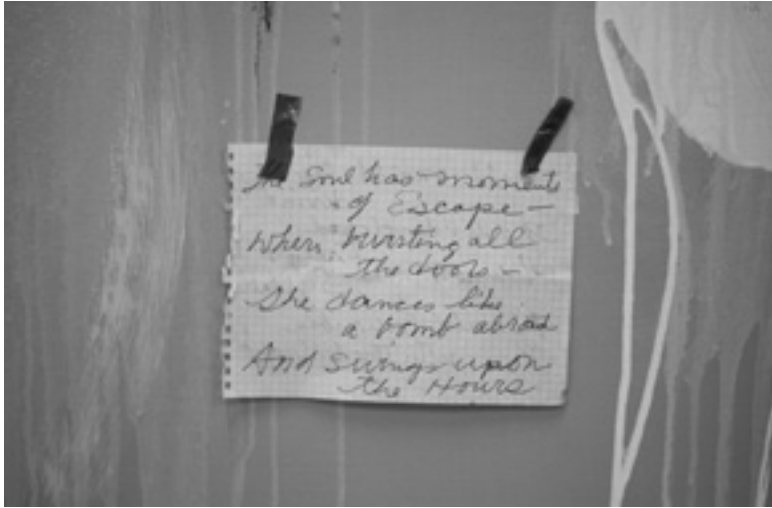 The Soul has moments
of Escape -
When, bursting all
the doors -
She dances like
a bomb abroad
And swings upon
the Hours